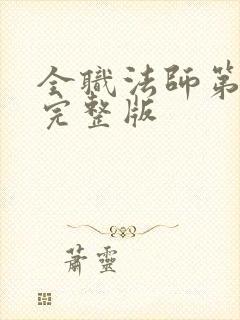 全職法師第
完整版
蕭靈